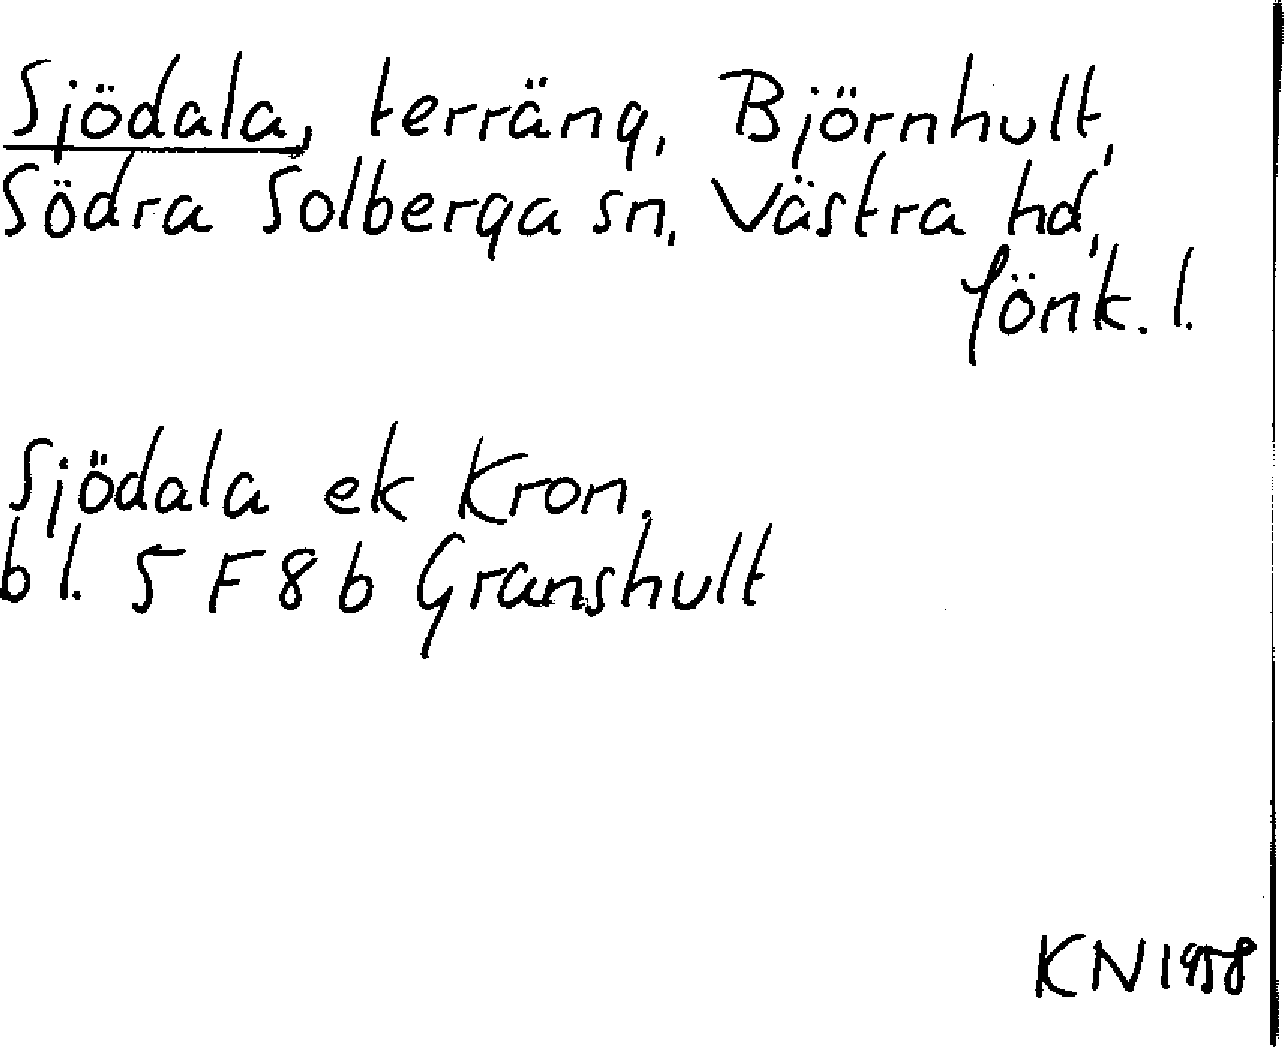 Sjödala, terräng, Björnhult,
Södra Solberga sn, Västra hd,
Jönk. l.
Sjödala ek Kron,
bl. 5 F 8 b Granshult
KN 1958